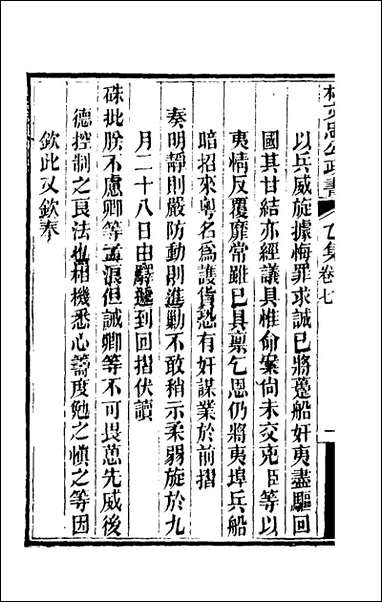 林文忠公政書 乙集卷七 一
以兵威旋據悔罪求誠已將躉船奸夷盡驅回
國其甘結亦經議具惟命案尚未交兇臣等以
夷情反覆靡常雖已具稟乞恩仍將夷埠兵船
暗招來粵名爲護貨恐有奸謀業於前摺
奏明靜則嚴防動則進勦不敢稍示柔弱旋於九
月二十八日由驛遞到回摺伏讀
硃批朕不慮卿等孟浪但誡卿等不可畏葸先威後
德控制之良法也相機悉心籌度勉之愼之等因
欽此又欽奉